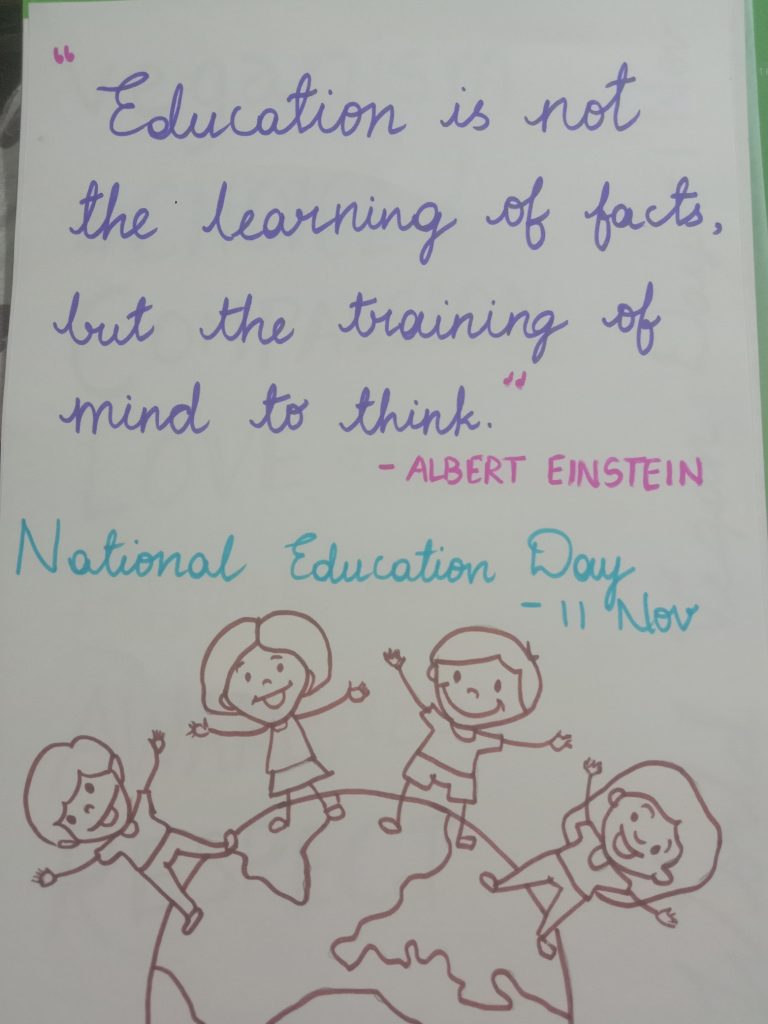 "Education is not
the learning of facts,
but the training of
mind to think."
- ALBERT EINSTEIN
National Education Day
- 11 Nov